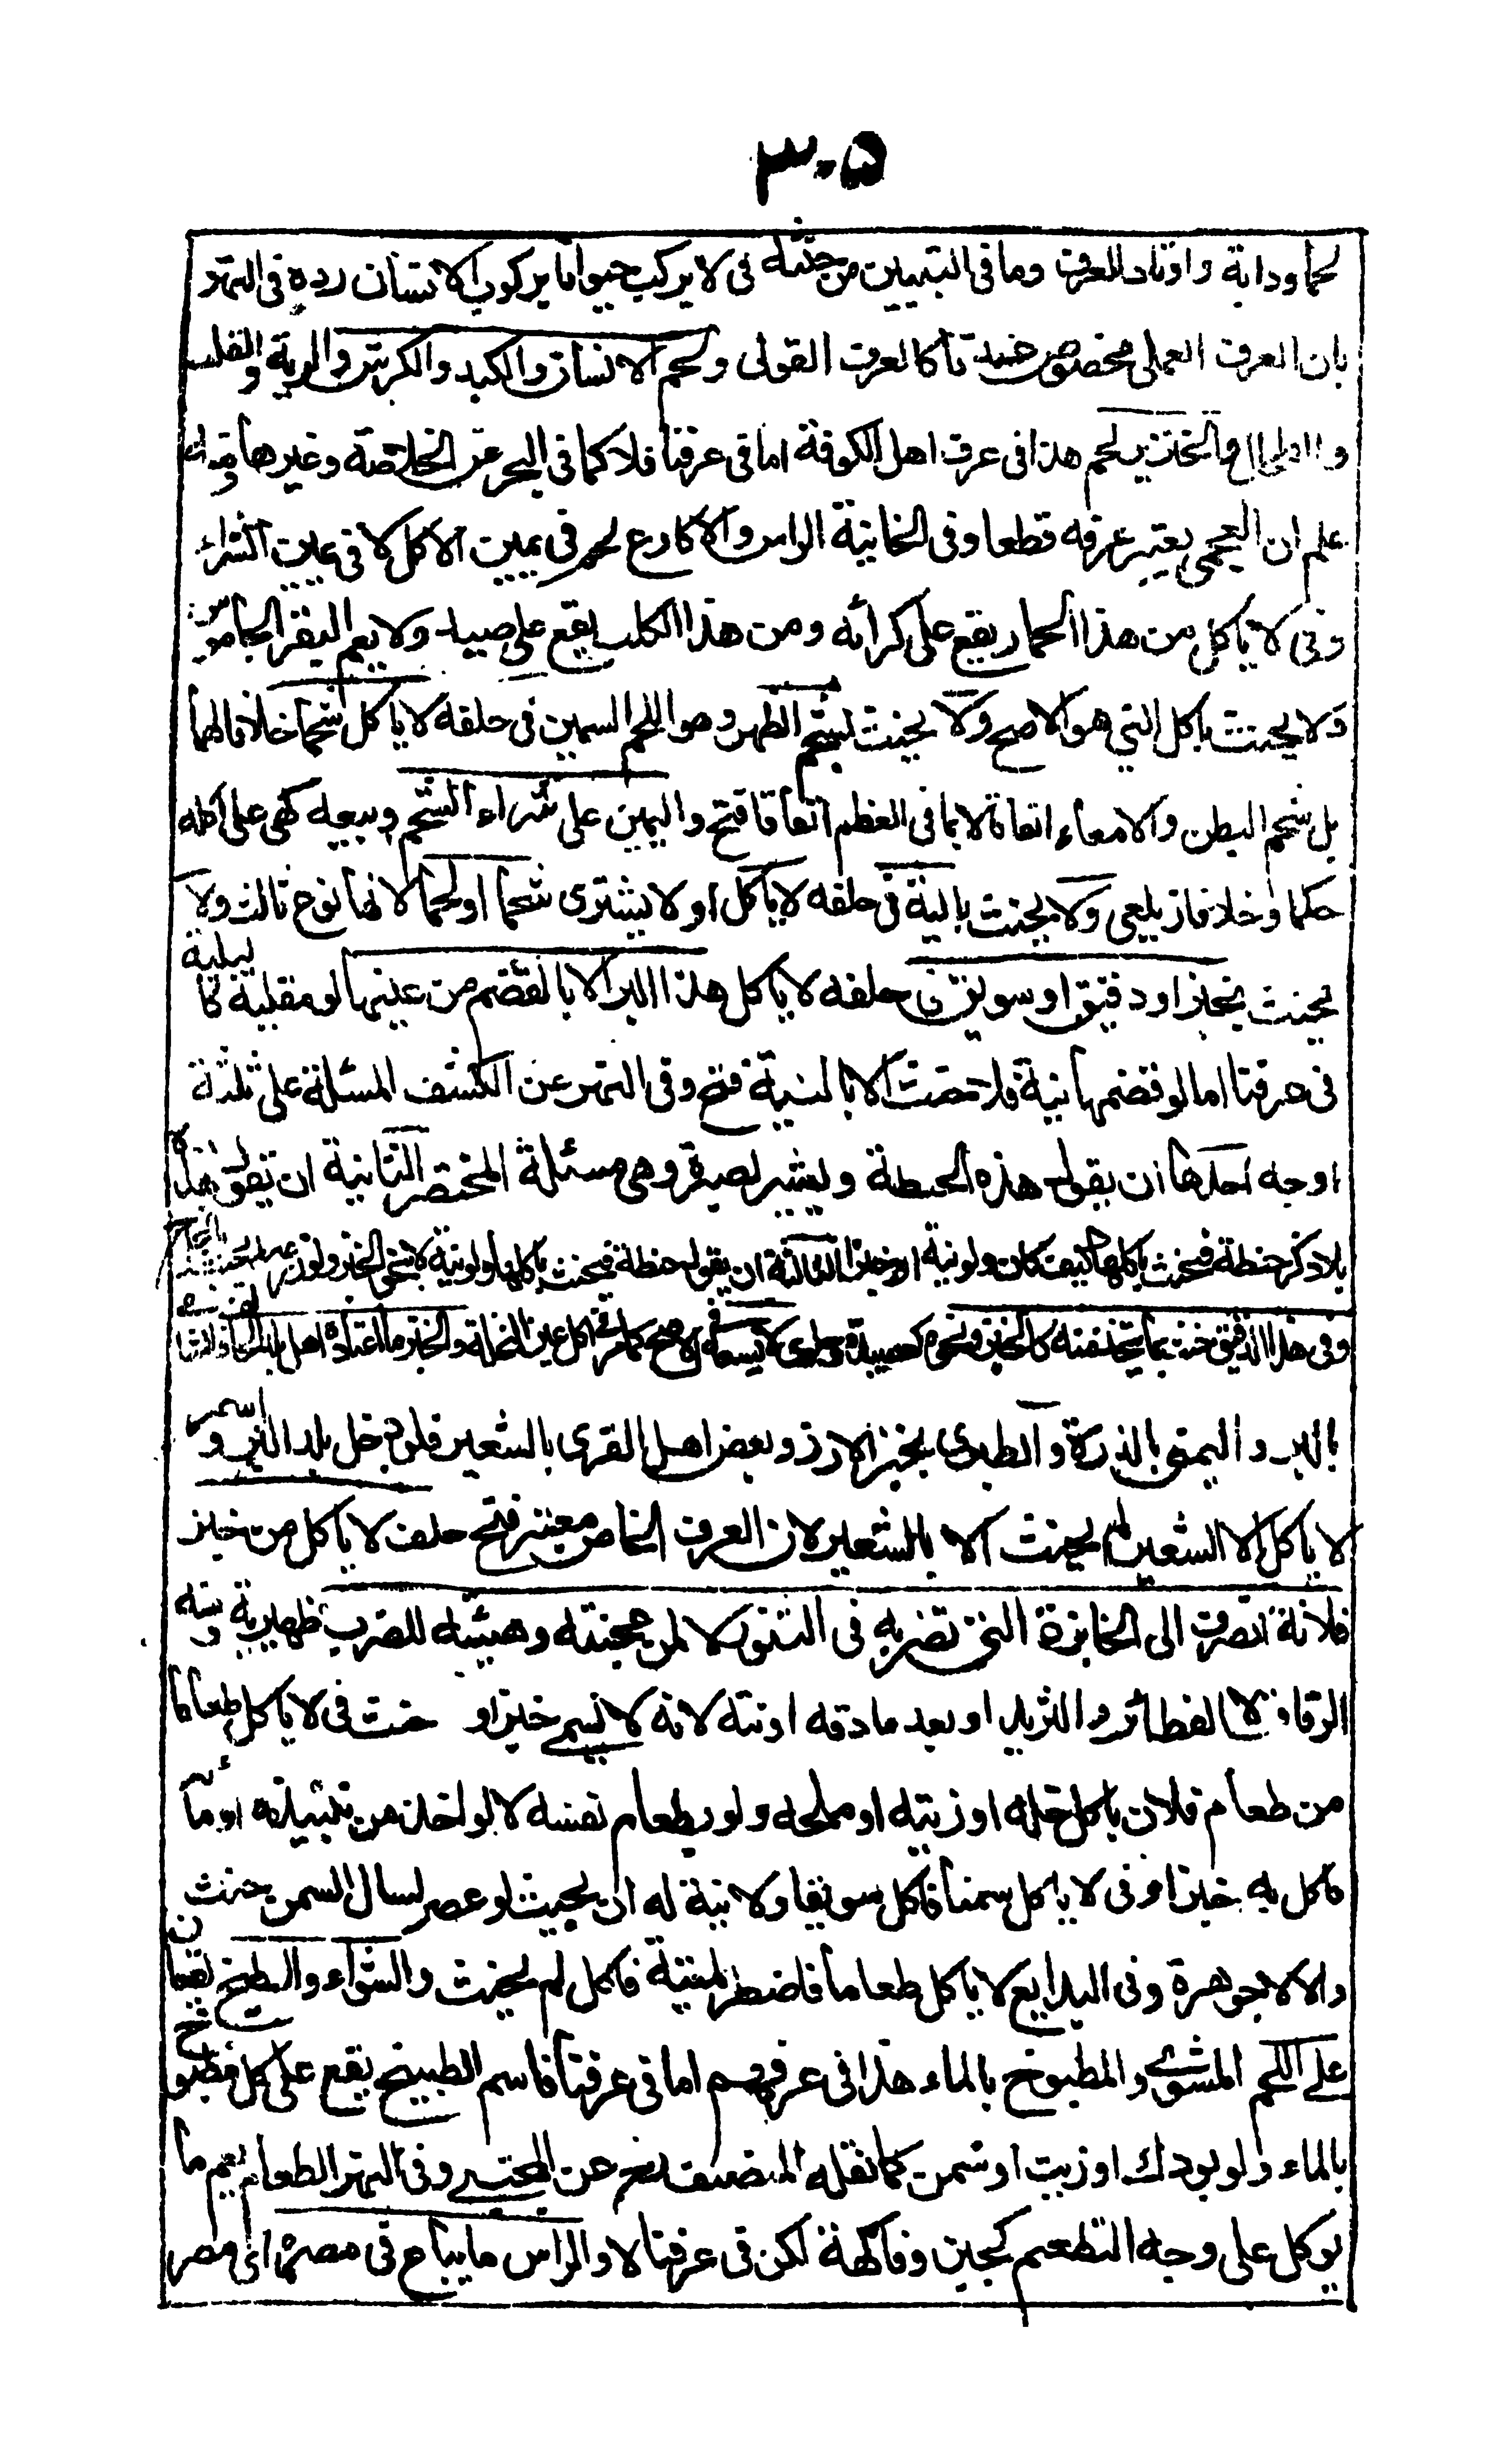 ٣٠٥
لحما ودابة واوتادا للعرف وما في التبيين من حنثه في لا يركب حيوانا بركوب الانسان رده في النهر
بان العرف العملي مخصص عندنا كالعرف القولي ولحم الانسان والكبد والكرش والرية والقلب
والطحال والخنزير لحم هذا في عرف اهل الكوفة اما في عرفنا فلا كما في البحر عن الخلاصة وغيرها ومنه
علم ان العجمي يعتبر عرفه قطعا وفي الخانية الراس والاكارع لحم في يمين الاكل لا في يمين الشراء
وفي لا ياكل من هذا الحمار يقع على كرائه ومن هذا الكلب يقع على صيده ولا يعم البقر الجاموس
ولا يحنث باكل الني هو الاصح ولا يحنث بشحم الظهر وهو اللحم السمين في حلفه لا ياكل شحما خلافا لهما
بل شحم البطن والامعاء اتفاقا لا بما في العظم اتفاقا فتح واليمين على شراء الشحم وبيعه كهي على اكله
حكما وخلافا زيلعي ولا يحنث بالية في حلفه لا ياكل او لا يشتري شحما او لحما لانها نوع ثالث ولا
يحنث بخبز او دقيق او سويق في حلفه لا ياكل هذا البر الا بالقضم من عينها لو مقلية كالبليلة
في عرفنا اما لو قضمها نية فلا حنث الا بالنية فتح وفي النهر عن الكشف المسئلة على ثلثة
اوجه احدها ان يقول هذه الحنطة ويشير لصبرة وهي مسئلة المختصر الثانية ان يقول هذه
بلا ذكر حنطة فيحنث باكلها كيف كان ولو نية او خبزا الثالثة ان يقول حنطة فيحنث باكلها ولو نية لا بنحو الخبز ولو زرعه لم يحنث بالخارج
وفي هذا الدقيق حنث بما يتخذ منه كالخبز ونحوه كعصيدة وحلوى لا بسفه في الاصح كما مر في اكل عين النخلة والخبز ما اعتاده اهل بلد الحالف فالشامي
بالبر واليمني بالذرة والطبري بخبز الارز وبعض اهل القرى بالشعير فلو دخل بلد البر واستمر
لا ياكل الا الشعير لم يحنث الا بالشعير لان العرف الخاص معتبر فتح حلف لا ياكل من خبز
فلانة انصرف الى الخابزة التي تضربه في التنور لا لمن عجنته وهيئته للضرب ظهيرية ومنه
الرقاق لا الفطائر والثريد او بعد ما دقه او فته لانه لا يسمى خبزا و حنث في لا ياكل طعاما
من طعام فلان باكل خله او زيته او ملحه ولو بطعام نفسه لا لو اخذ من نبيذه او مائه
فاكل به خبزا وفي لا ياكل سمنا فاكل سويقا ولا نية له ان بحيث لو عصر لسال السمن حنث
والا لا جوهرة وفي البدايع لا ياكل طعاما فاضطر لميتة فاكل لم يحنث والشواء والطبيخ يقعان
على اللحم المشوي والمطبوخ بالماء هذا في عرفهم اما في عرفنا فاسم الطبيخ يقع على كل مطبوخ
بالماء ولو بودك او زيت او سمن كما نقله المصنف عن المجتبى وفي النهر الطعام يعم ما
يوكل على وجه التطعم كجبن وفاكهة لكن في عرفنا لا والراس ما يباع في مصره اي مصر